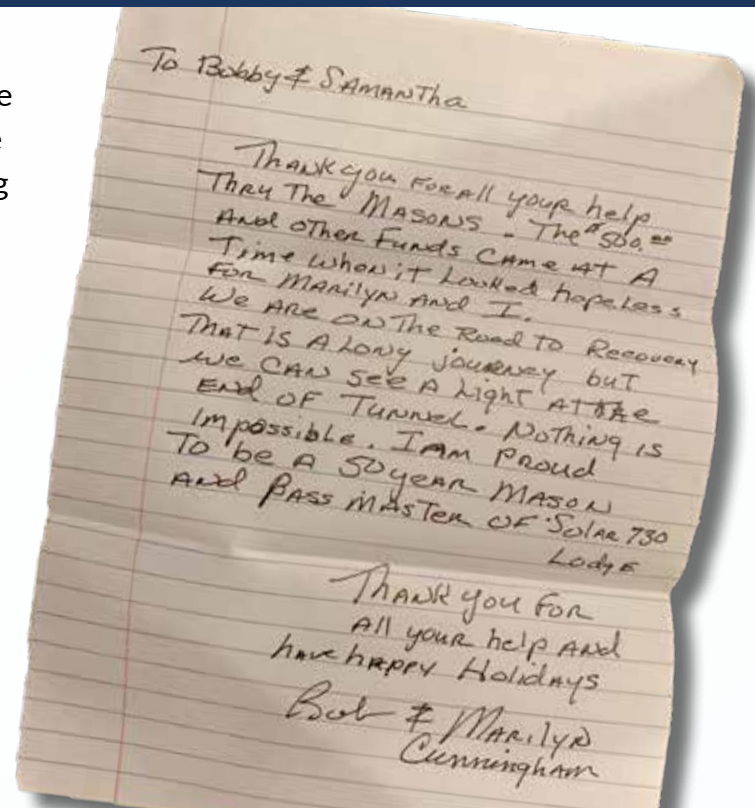 e
e
g
To Bobby & Samantha
Thank you for all your help
Thru The Masons - The $500.00
And other Funds Came at a
Time when it Looked hopeless
For Marilyn And I.
We are on The Road to Recovery
That is a Long journey but
we can see a Light at the
End of Tunnel. Nothing is
Impossible. I am Proud
To be a 50 year Mason
And Pass Master of Solar 730
Lodge
Thank you For
all your help and
have happy Holidays
Bob & Marilyn
Cunningham